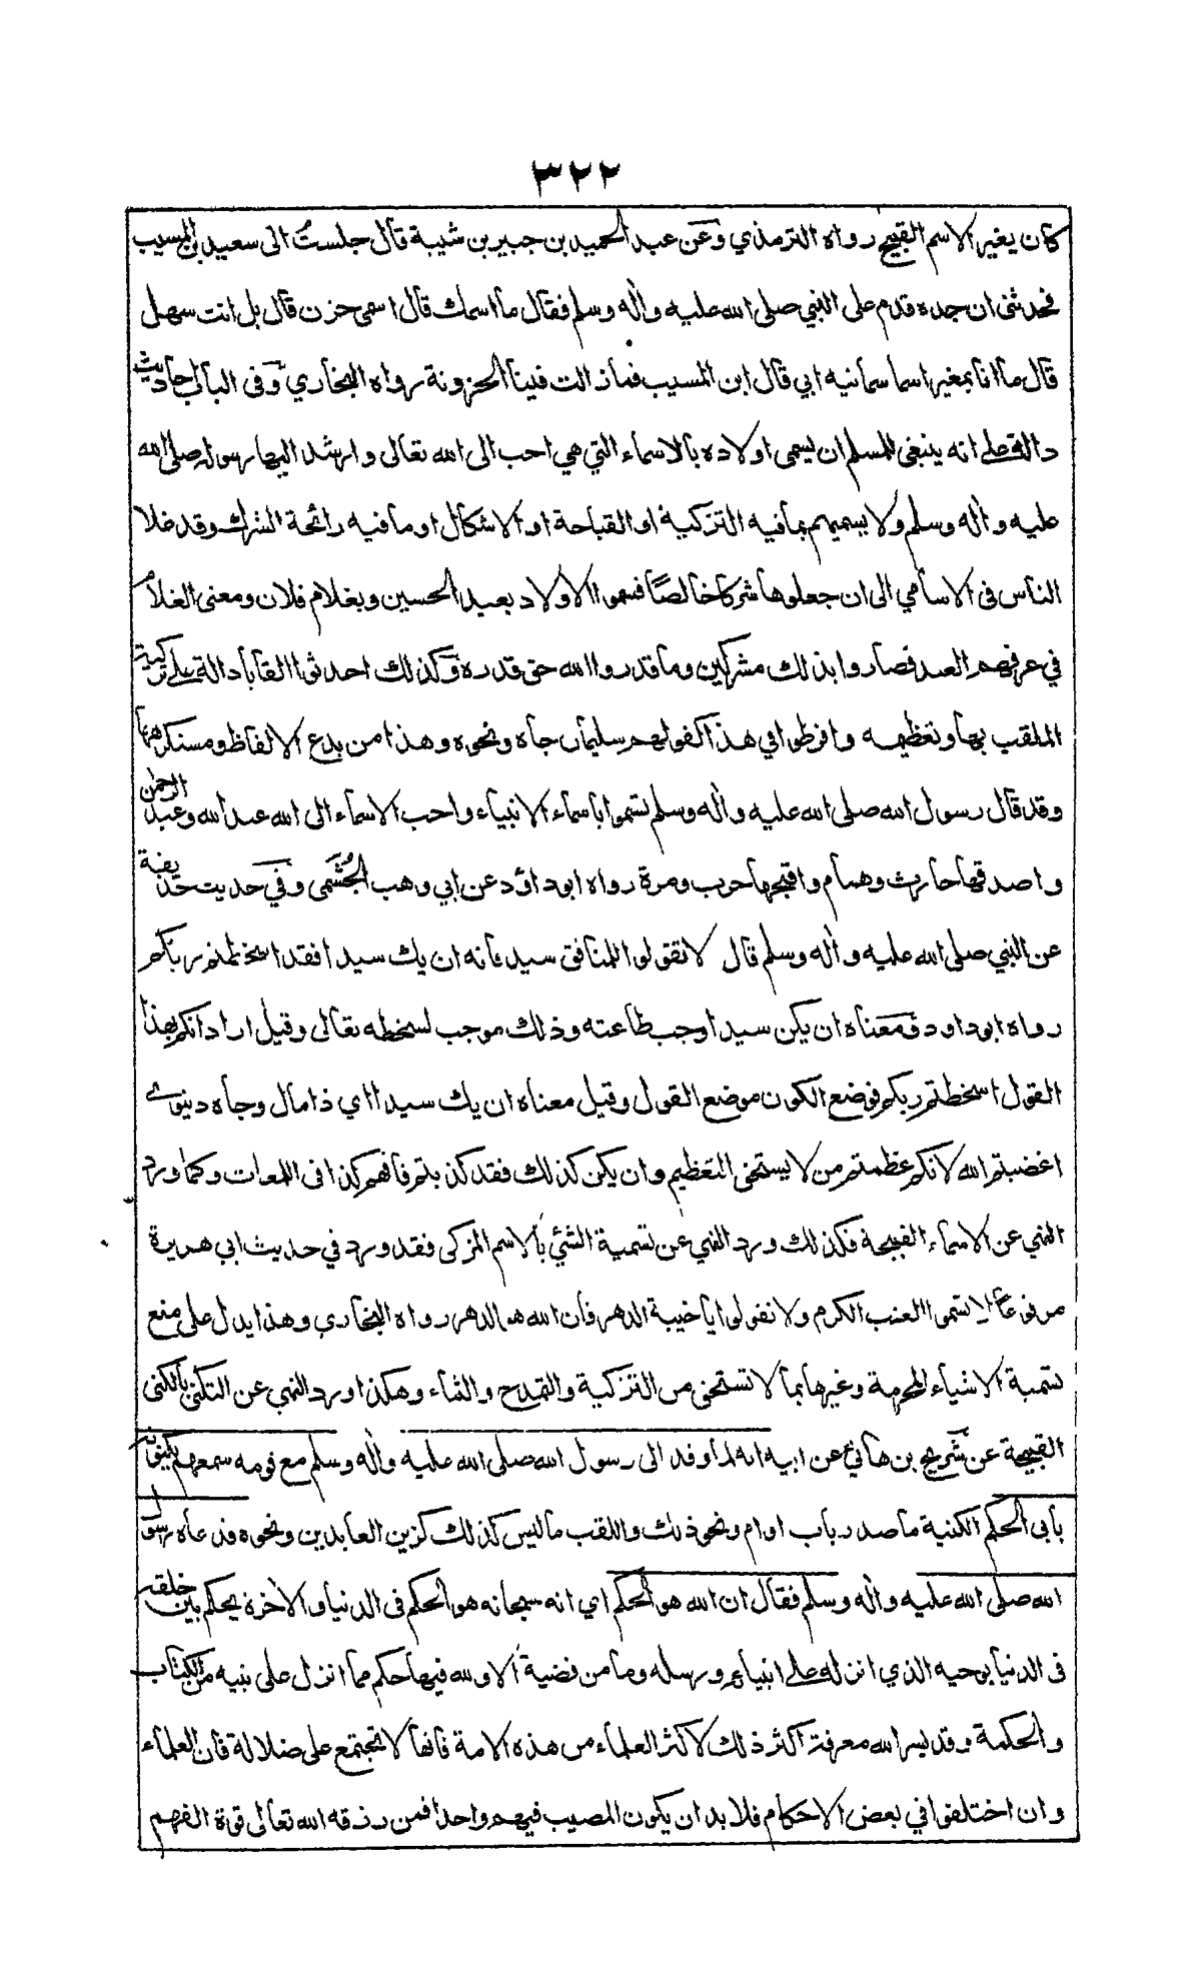 ٣٢٢
كان يغير الاسم القبيح رواه الترمذي وعن عبد الحميد بن جبير بن شيبة قال جلست الى سعيد بن المسيب
فحدثنى ان جده قدم على النبي صلى الله عليه واله وسلم فقال ما اسمك قال اسمى حزن قال بل انت سهل
قال ما انا بمغير اسما سمانيه ابي قال ابن المسيب فما زالت فينا الحزونة رواه البخاري وفى الباب احاديث
دالة على انه ينبغى للمسلم ان يسمى اولاده بالاسماء التي هي احب الى الله تعالى وارشد اليها رسوله صلى الله
عليه واله وسلم ولا يسميهم بما فيه التزكية او القباحة او الاشكال او ما فيه رائحة الشرك وقد غلا
الناس فى الاسامي الى ان جعلوها شركا خالصًا فسموا الاولاد بعبد الحسين وبغلام فلان ومعنى الغلام
في عرفهم العبد فصاروا بذلك مشركين وما قدروا الله حق قدره وكذلك احدثوا القابا دالة على تزكية
الملقب بها وتعظيمه وافرطوا في هذا كقولهم سليمان جاه ونحوه وهذا من بدع الالفاظ ومستكرهها
وقد قال رسول الله صلى الله عليه واله وسلم تسموا باسماء الانبياء واحب الاسماء الى الله عبد الله وعبد الرحمن
واصدقها حارث وهمام واقبحها حرب ومرة رواه ابو داؤد عن ابي وهب الجُشَمى وفي حديث حذيفة
عن النبي صلى الله عليه واله وسلم قال لا تقولوا للمنافق سيد فانه ان يك سيدا فقد اسخطتم ربكم
رواه ابو داود فمعناه ان يكن سيدا وجب طاعته وذلك موجب لسخطه تعالى وقيل اراد انكم بهذا
القول اسخطتم ربكم فوضع الكون موضع القول وقيل معناه ان يك سيدا اي ذا مال وجاه دنيوى
اغضبتم الله لانكم عظمتم من لا يستحق التعظيم وان يكن كذلك فقد كذبتم فافهم كذا فى اللمعات وكما ورد
النهي عن الاسماء القبيحة فكذلك ورد النهي عن تسمية الشئ بالاسم المزكى فقد ورد في حديث ابي هريرة
مرفوعا لا تسموا العنب الكرم ولا تقولوا يا خيبة الدهر فان الله هو الدهر رواه البخاري وهذا يدل على منع
تسمية الاشياء المحرمة وغيرها بما لا تستحق من التزكية والمدح والثناء وهكذا ورد النهى عن التكنى بالكنى
القبيحة عن شريح بن هانئ عن ابيه انه لما وفد الى رسول الله صلى الله عليه واله وسلم مع قومه سمعهم يكنونه
بابى الحكم الكنية ما صدر باب او ام ونحو ذلك واللقب ما ليس كذلك كزين العابدين ونحوه فدعاه رسول
الله صلى الله عليه واله وسلم فقال ان الله هو الحكم اي انه سبحانه هو الحكم فى الدنيا والأخرة يحكم بين خلقه
فى الدنيا بوحيه الذي انزله على انبيائه ورسله وما من قضية الا ولله فيها حكم مما انزل على نبيه من الكتاب
والحكمة وقد يسر الله معرفة اكثر ذلك لاكثر العلماء من هذه الامة فانها لا تجتمع على ضلالة فان العلماء
وان اختلفوا في بعض الاحكام فلا بد ان يكون المصيب فيهم واحدا فمن رزقه الله تعالى قوة الفهم